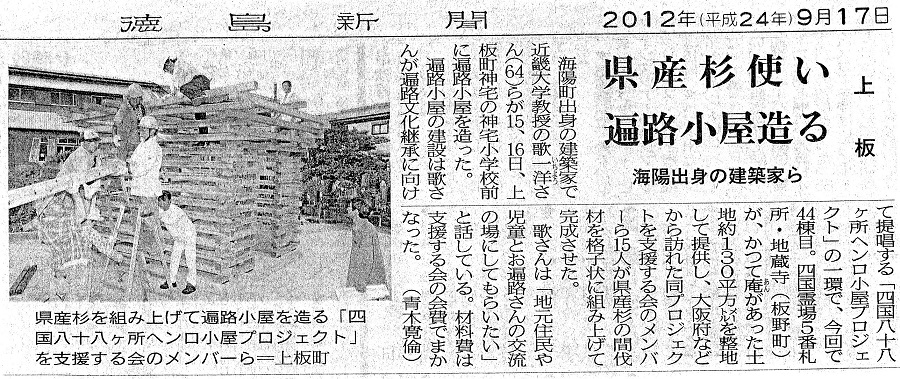 徳島新聞
2012年(平成24年)9月17日
上板
県産杉使い
遍路小屋造る
海陽出身の建築家ら
海陽町出身の建築家で
近畿大学教授の歌一洋さ
ん(64)らが15、16日、上
板町神宅の神宅小学校前
に遍路小屋を造った。
遍路小屋の建設は歌さ
んが遍路文化継承に向け
て提唱する「四国八十八
ヶ所ヘンロ小屋プロジェ
クト」の一環で、今回で
44棟目。四国霊場5番札
所・地蔵寺(板野町)
が、かつて庵があった土
地約130平方㍍を整地
して提供し、大阪府など
から訪れた同プロジェク
トを支援する会のメンバ
ーら15人が県産杉の間伐
材を格子状に組み上げて
完成させた。
歌さんは「地元住民や
児童とお遍路さんの交流
の場にしてもらいたい」
と話している。材料費は
支援する会の会費でまか
なった。(青木寛倫)
県産杉を組み上げて遍路小屋を造る「四
国八十八ヶ所ヘンロ小屋プロジェクト」
を支援する会のメンバーら=上板町